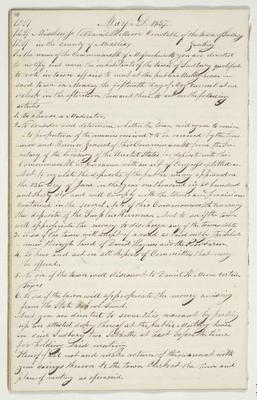 May D. 1837
Constable of the town of Sudbury
in the county of Middlesex Greeting
In the name of the Commonwealth of Massachusetts you are directed
to notify and warn the inhabitants of the town of Sudbury qualified
to vote in town affairs to meet at the public Meeting house in
said town on Monday the fifteenth day of May current at one
o'clock in the afternoon then and there to act on the following
articles
1. To choose a Moderator.
2. To consider and determine whether the town will agree to receive
its proportion of the monies received & to be received by the Treas
urer and Receiver General of this Commonwealth from the Sec
retary of the Treasury of the United States for deposit with this
Commonwealth in pursuance of
Act to regulate the deposites of the public money approved on
the day of June in the year one thousand eight hundred
and thirty six and will comply with the terms & provisions
contained in the several Acts of this Commonwealth concerning
the deposite of the Surplus Revenue. And to see if the town
will appropriate the money to discharge any of the towns debts
3. To see if the town will accept a road as laid out by the Select
men through land of David Haynes and the
4. To hear and act on all Reports of Committees that may
be offered.
5. To see if the town will discount to Daniel H. certain
taxes
6. To see if the town will appropriate the money arising
from the State School fund.
And you are directed to serve this warrant by posting
up an attested copy thereof at the public Meeting house
in said Sudbury two Sabbaths at least before the time
for holding said meeting.
Hereof fail not and make return of this warrant with
your doings thereon to the Town Clerk at the time and
place of meeting as aforesaid.